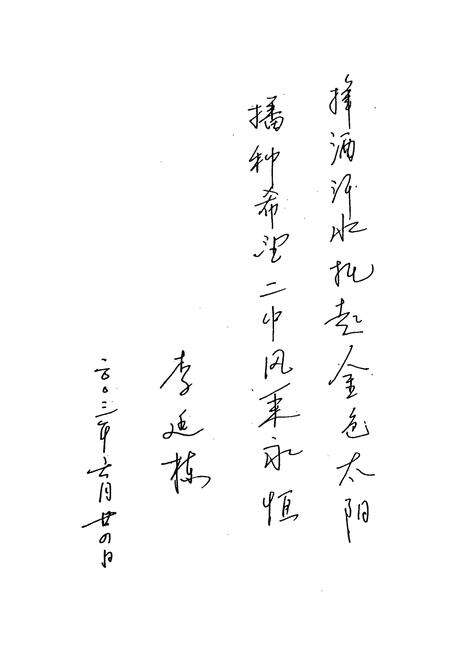 挥洒汗水托起金色太阳
播种希望二中风采永恒
李廷栋
二〇〇三年六月廿四日